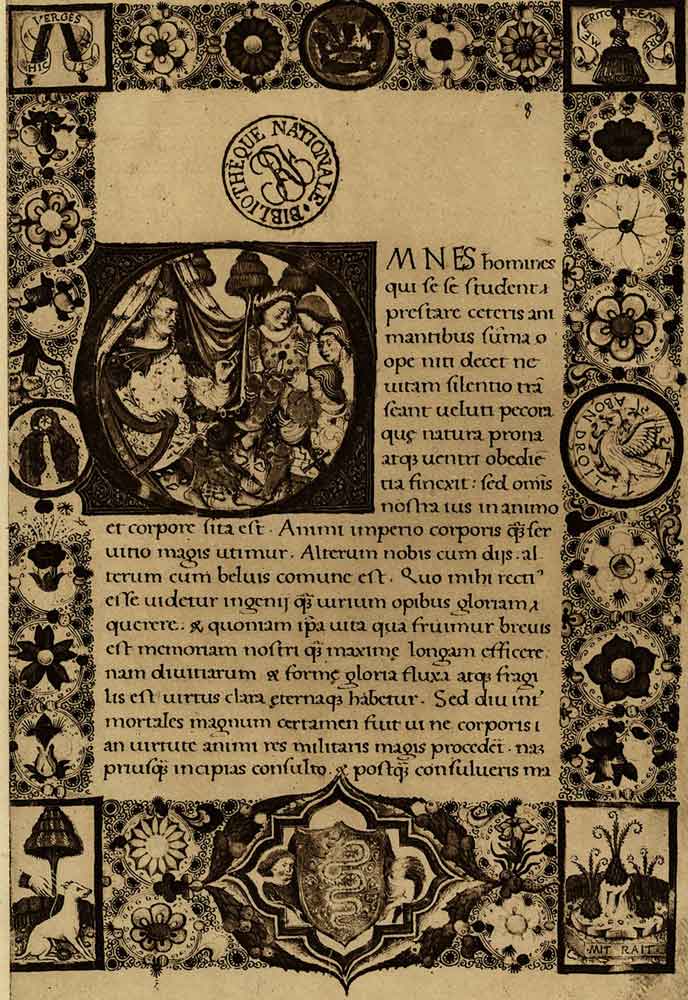 VERGES
HIC
MERITO TEMPORE
8
BIBLIOTHÈQUE NATIONALE
RF
OMNES homines
qui se se student
prestare ceteris ani
mantibus sūma o
ope niti decet ne
uitam silentio trā
seant ueluti pecora
quę natura prona
atqȝ uentri obediē
tia finxit: sed omīs
nostra uis in animo
et corpore sita est. Animi imperio corporis q̄ȝ ser
uitio magis utimur. Alterum nobis cum dijs: al
terum cum beluis comune est. Quo mihi recti᾽
esse uidetur ingenij q̄ȝ uirium opibus gloriam
querere. & quoniam ip̄a uita qua fruimur breuis
est memoriam nostri q̄ȝ maximę longam efficere.
nam diuitiarum & formę gloria fluxa atqȝ fragi
lis est uirtus clara ęternaqȝ habetur. Sed diu int᾽
mortales magnum certamen fuit ui ne corporis i
an uirtute animi res militaris magis procedēt. naȝ
priusq̄ȝ incipias consulto. & postq̄ȝ consulueris ma
MIT RAIT